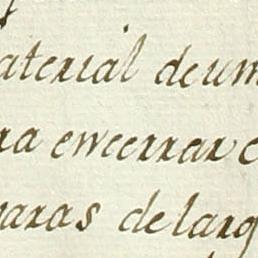 aterial de um
ra encerrar c
aras de larg